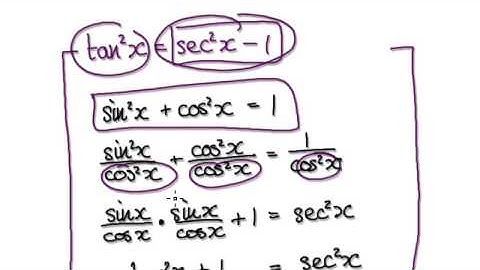 tan²x = sec²x - 1
sin²x + cos²x = 1
sin²x/cos²x + cos²x/cos²x = 1/cos²x
sinx/cosx · sinx/cosx + 1 = sec²x
x + 1 = sec²x